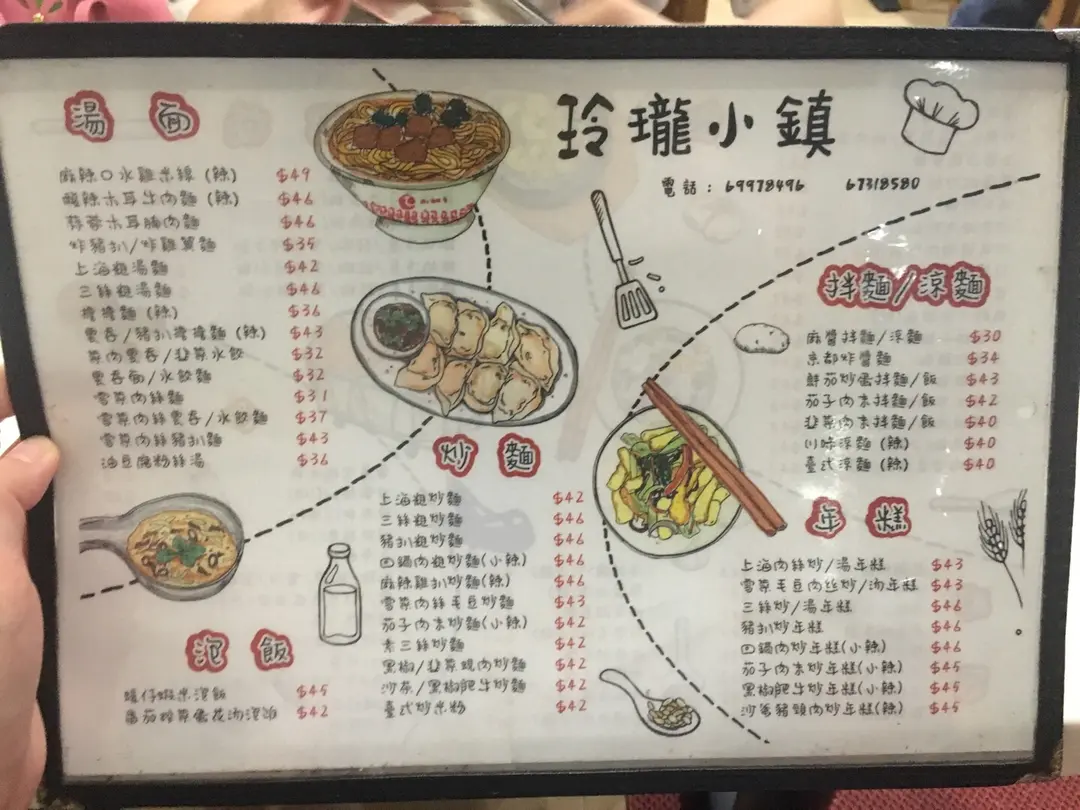 玲瓏小鎮
電話：69978496 67318580
湯面
麻辣口水雞米線(辣) $49
酸辣木耳牛肉麵(辣) $46
木耳腩肉麵 $46
炸豬扒/炸雞翼麵 $35
上海粗湯麵 $42
三絲粗湯麵 $46
擔擔麵(辣) $36
雲吞/豬扒擔擔麵(辣) $43
菜肉雲吞/韭菜水餃 $32
雲吞面/水餃麵 $32
雪菜肉絲麵 $31
雪菜肉絲雲吞/水餃麵 $37
雪菜肉絲豬扒麵 $43
油豆腐粉絲湯 $36
泡飯
蝦米泡飯 $45
番茄榨菜蛋花汤泡飯 $42
炒麵
上海粗炒麵 $42
三絲粗炒麵 $46
豬扒粗炒麵 $46
回鍋肉粗炒麵(小辣) $46
麻辣雞扒炒麵(辣) $46
雪菜肉絲毛豆炒麵 $43
茄子肉末炒麵(小辣) $42
素三絲炒麵 $42
黑椒/韭菜蜆肉炒麵 $42
沙茶/黑椒肥牛炒麵 $42
臺式炒米粉 $42
拌麵/涼麵
麻醬拌麵/涼麵 $30
京都炸醬麵 $34
鮮茄炒蛋拌麵/飯 $43
茄子肉末拌麵/飯 $42
韭菜肉末拌麵/飯 $40
川味涼麵(辣) $40
臺式涼麵(辣) $40
年糕
上海肉絲炒/湯年糕 $43
雪菜毛豆肉丝炒/汤年糕 $43
三絲炒/湯年糕 $46
豬扒炒年糕 $46
回鍋肉炒年糕(小辣) $46
茄子肉末炒年糕(小辣) $45
黑椒肥牛炒年糕(小辣) $45
沙爹豬頸肉炒年糕(辣) $45